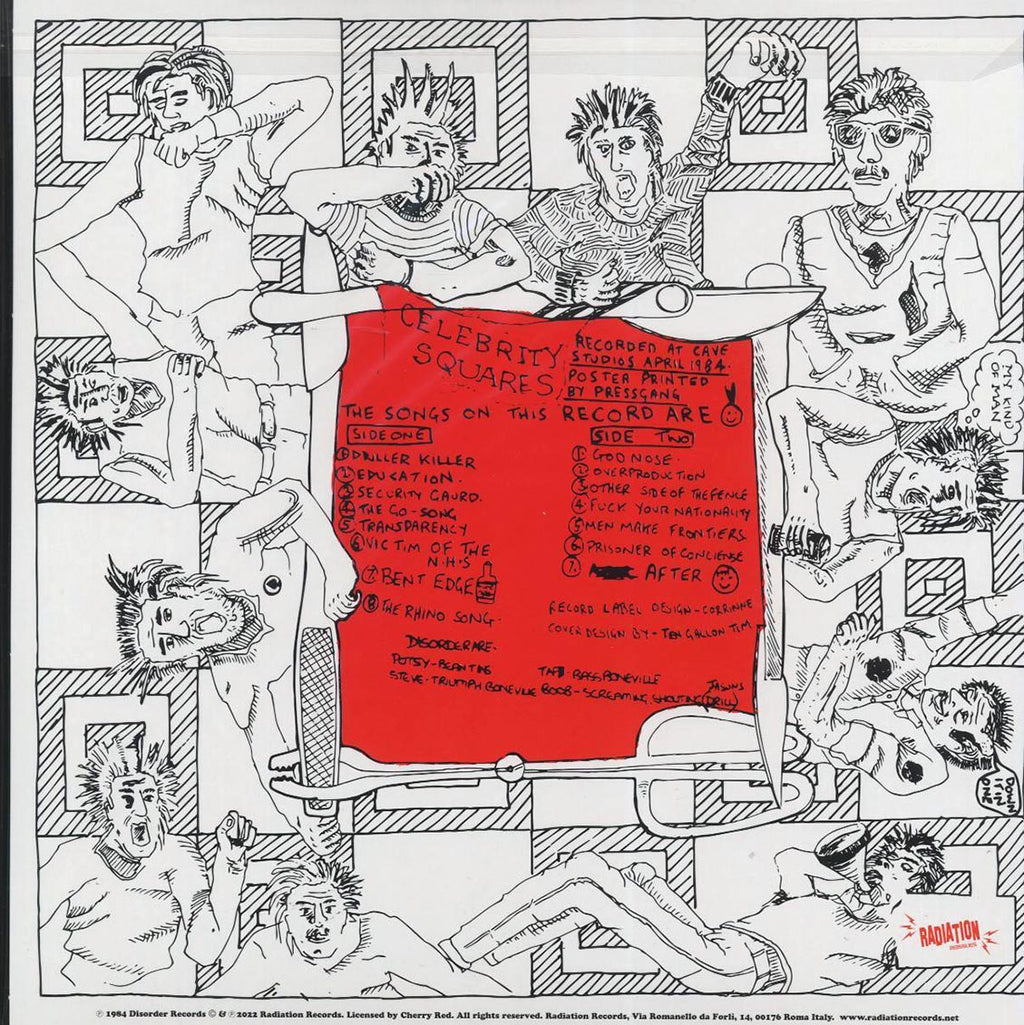 CELEBRITY
SQUARES
RECORDED AT CAVE
STUDIOS APRIL 1984.
POSTER PRINTED
BY PRESSGANG
THE SONGS ON THIS RECORD ARE
SIDE ONE
① DRILLER KILLER
② EDUCATION.
③ SECURITY GAURD.
④ THE GO-SONG
⑤ TRANSPARENCY
⑥ VICTIM OF THE
N.H.S
⑦ BENT EDGE
⑧ THE RHINO SONG.
SIDE TWO
① GOD NOSE.
② OVERPRODUCTION
③ OTHER SIDE OF THE FENCE
④ FUCK YOUR NATIONALITY
⑤ MEN MAKE FRONTIERS
⑥ PRISONER OF CONCIENSE
⑦. AFTER
RECORD LABEL DESIGN-CORRINNE
COVER DESIGN BY-TEN GALLON TIM
DISORDER ARE.
TAFF BASS BONEVILLE
STEVE-TRIUMPH BONEVILLE BOOB-SCREAMING, SHOUTING (JASUNS DRILL)
MY KIND
OF MAN
DOWN
IT IN
ONE
RADIATION
℗ 1984 Disorder Records © & ℗ 2022 Radiation Records. Licensed by Cherry Red. All rights reserved. Radiation Records, Via Romanello da Forlì, 14, 00176 Roma Italy. www.radiationrecords.net